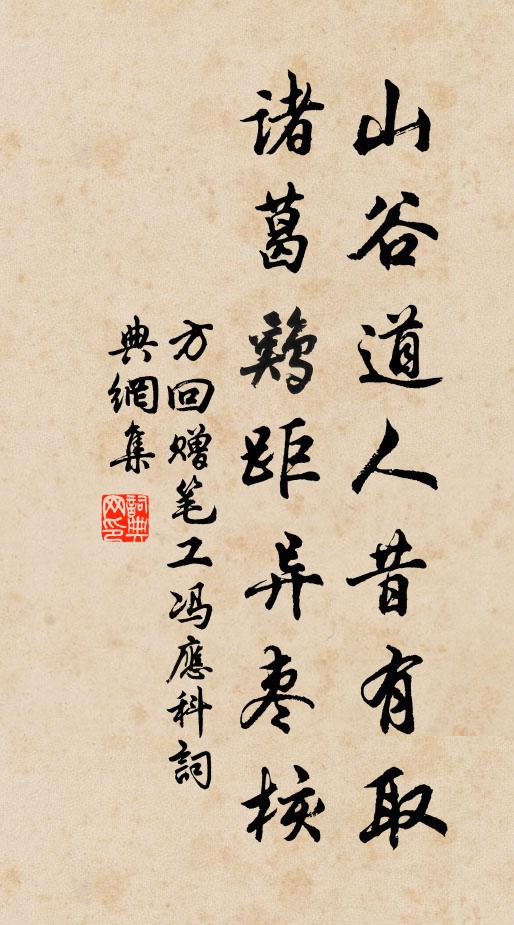 山谷道人昔有取
诸葛鷄距异枣核
方回赠笔工冯應科詞
典網集
詞典网印